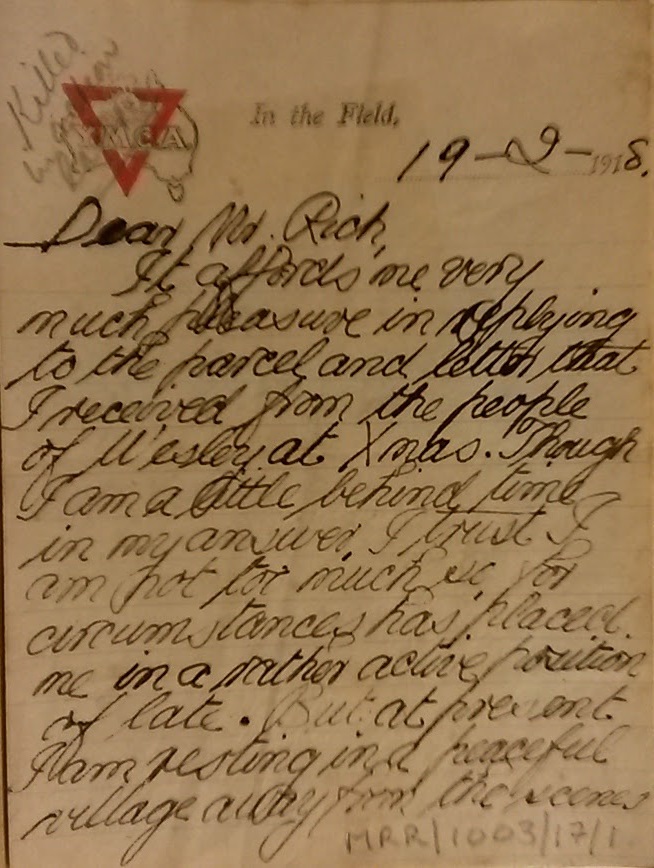 Killed
in action
YMCA
In the Field,
19-2-1918.
Dear Mr. Rich,
It affords me very
much pleasure in replying
to the parcel and letter that
I received from the people
of Wesley at Xmas. Though
I am a little behind time
in my answer, I trust I
am not too much so for
circumstances has placed
me in a rather active position
of late. But at present
I am resting in a peaceful
village away from the scenes
MRR/1003/17/1.